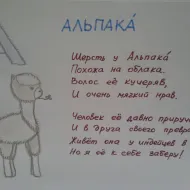 А
АЛЬПАКА́
Шерсть у Альпака́
Похожа на облака,
Волос её кучеряв,
И очень мягкий нрав.
Человек её давно приручи
И в друга своего превра
Живёт она у индейцев в
Но я её к себе заберу!